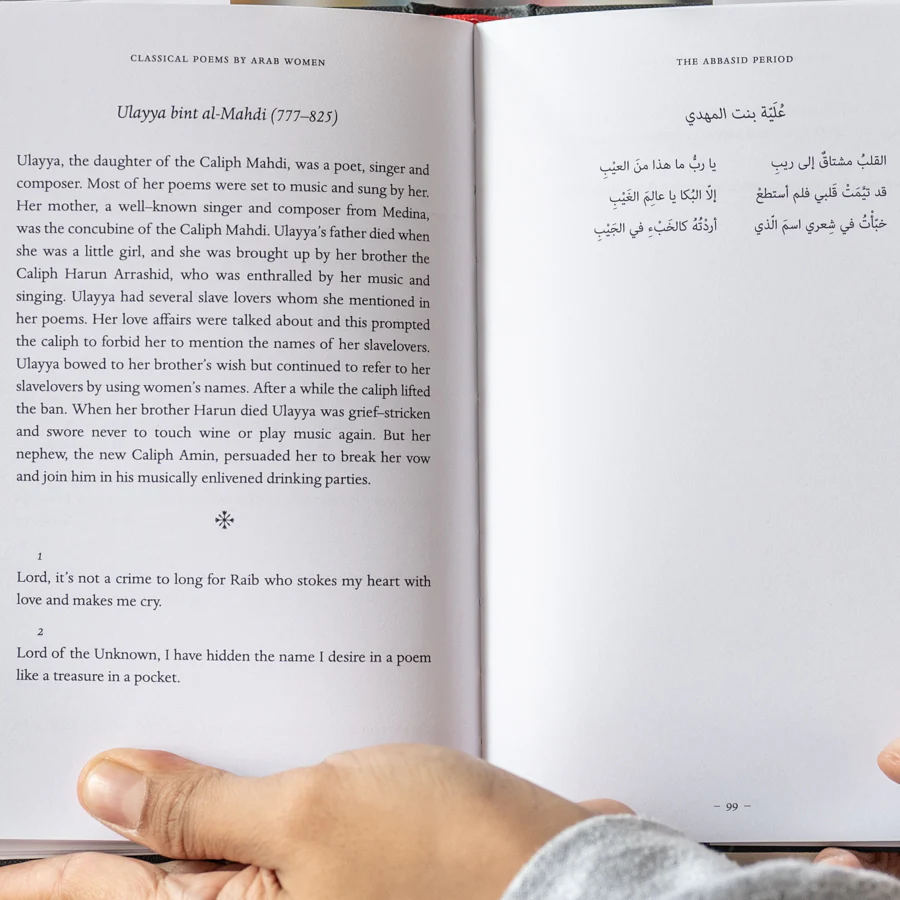 CLASSICAL POEMS BY ARAB WOMEN
Ulayya bint al-Mahdi (777–825)
Ulayya, the daughter of the Caliph Mahdi, was a poet, singer and
composer. Most of her poems were set to music and sung by her.
Her mother, a well–known singer and composer from Medina,
was the concubine of the Caliph Mahdi. Ulayya's father died when
she was a little girl, and she was brought up by her brother the
Caliph Harun Arrashid, who was enthralled by her music and
singing. Ulayya had several slave lovers whom she mentioned in
her poems. Her love affairs were talked about and this prompted
the caliph to forbid her to mention the names of her slavelovers.
Ulayya bowed to her brother's wish but continued to refer to her
slavelovers by using women's names. After a while the caliph lifted
the ban. When her brother Harun died Ulayya was grief–stricken
and swore never to touch wine or play music again. But her
nephew, the new Caliph Amin, persuaded her to break her vow
and join him in his musically enlivened drinking parties.
1
Lord, it's not a crime to long for Raib who stokes my heart with
love and makes me cry.
2
Lord of the Unknown, I have hidden the name I desire in a poem
like a treasure in a pocket.
THE ABBASID PERIOD
عُلَيّة بنت المهدي
القلبُ مشتاقٌ إلى ريبِ يا ربُّ ما هذا منَ العيْبِ
قد تيَّمَتْ قَلبي فلم أستطعْ إلّا البُكا يا عالِمَ الغَيْبِ
خبّأْتُ في شِعري اسمَ الّذي أردْتُهُ كالخَبْءِ في الجَيْبِ
– 99 –